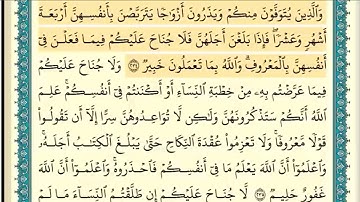 وَالَّذِينَ يُتَوَفَّوْنَ مِنكُمْ وَيَذَرُونَ أَزْوَٰجًا يَتَرَبَّصْنَ بِأَنفُسِهِنَّ أَرْبَعَةَ
أَشْهُرٍ وَعَشْرًا ۖ فَإِذَا بَلَغْنَ أَجَلَهُنَّ فَلَا جُنَاحَ عَلَيْكُمْ فِيمَا فَعَلْنَ فِىٓ
أَنفُسِهِنَّ بِالْمَعْرُوفِ ۗ وَاللَّهُ بِمَا تَعْمَلُونَ خَبِيرٌ ﴿٢٣٤﴾ وَلَا جُنَاحَ عَلَيْكُمْ
فِيمَا عَرَّضْتُم بِهِۦ مِنْ خِطْبَةِ النِّسَآءِ أَوْ أَكْنَنتُمْ فِىٓ أَنفُسِكُمْ ۚ عَلِمَ
اللَّهُ أَنَّكُمْ سَتَذْكُرُونَهُنَّ وَلَٰكِن لَّا تُوَاعِدُوهُنَّ سِرًّا إِلَّآ أَن تَقُولُوا۟
قَوْلًا مَّعْرُوفًا ۚ وَلَا تَعْزِمُوا۟ عُقْدَةَ النِّكَاحِ حَتَّىٰ يَبْلُغَ الْكِتَٰبُ أَجَلَهُۥ ۚ
وَاعْلَمُوٓا۟ أَنَّ اللَّهَ يَعْلَمُ مَا فِىٓ أَنفُسِكُمْ فَاحْذَرُوهُ ۚ وَاعْلَمُوٓا۟ أَنَّ اللَّهَ
غَفُورٌ حَلِيمٌ ﴿٢٣٥﴾ لَّا جُنَاحَ عَلَيْكُمْ إِن طَلَّقْتُمُ النِّسَآءَ مَا لَمْ